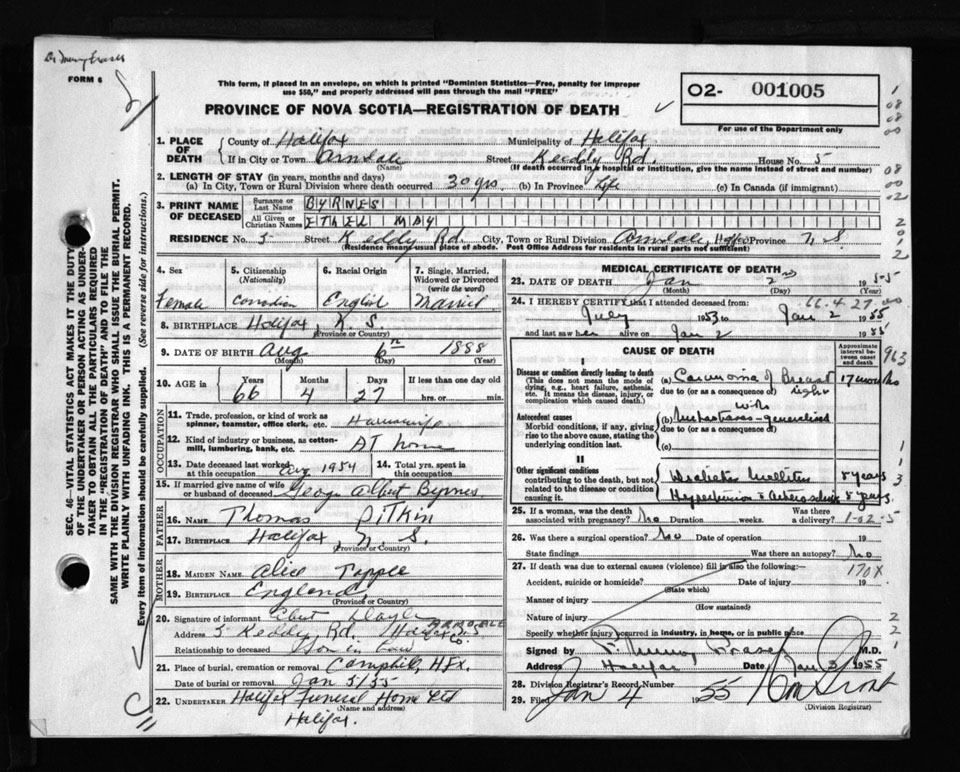 Dr Murray Fraser
FORM 6
This form, if placed in an envelope, on which is printed "Dominion Statistics—Free, penalty for improper
use $50," and properly addressed will pass through the mail "FREE"
PROVINCE OF NOVA SCOTIA—REGISTRATION OF DEATH
O2- 001005
For use of the Department only
SEC. 46—VITAL STATISTICS ACT MAKES IT THE DUTY
OF THE UNDERTAKER OR PERSON ACTING AS UNDER-
TAKER TO OBTAIN ALL THE PARTICULARS REQUIRED
IN THE "REGISTRATION OF DEATH" AND TO FILE THE
SAME WITH THE DIVISION REGISTRAR WHO SHALL ISSUE THE BURIAL PERMIT.
WRITE PLAINLY WITH UNFADING INK. THIS IS A PERMANENT RECORD.
Every item of information should be carefully supplied. (See reverse side for instructions.)
1. PLACE OF DEATH
County of Halifax Municipality of Halifax
If in City or Town Armdale Street Keddy Rd. House No. 5
(Name) (If death occurred in a hospital or institution, give the name instead of street and number)
2. LENGTH OF STAY (in years, months and days)
(a) In City, Town or Rural Division where death occurred 30 yrs (b) In Province Life (c) In Canada (if immigrant)
3. PRINT NAME OF DECEASED
Surname or Last Name BYRNES
All Given or Christian Names ETHEL MAY
RESIDENCE No. 5 Street Keddy Rd. City, Town or Rural Division Armdale, Hfx Province N.S.
(Residence means usual place of abode. Post Office Address for residents in rural parts not sufficient)
4. Sex Female
5. Citizenship (Nationality) Canadian
6. Racial Origin English
7. Single, Married, Widowed or Divorced (write the word) Married
8. BIRTHPLACE Halifax, N.S.
(Province or Country)
9. DATE OF BIRTH Aug 6th 1888
(Month) (Day) (Year)
10. AGE in Years Months Days If less than one day old
66 4 27 hrs. or min.
OCCUPATION
11. Trade, profession, or kind of work as spinner, teamster, office clerk, etc. Housewife
12. Kind of industry or business, as cotton-mill, lumbering, bank, etc. AT home
13. Date deceased last worked at this occupation Aug 1954 14. Total yrs. spent in this occupation
15. If married give name of wife or husband of deceased George Albert Byrnes
FATHER
16. NAME Thomas Pitkin
17. BIRTHPLACE Halifax, N.S.
(Province or Country)
MOTHER
18. MAIDEN NAME Alice Tapple
19. BIRTHPLACE England
(Province or Country)
20. Signature of informant Doyle
Address 5 Keddy Rd. ARMDALE Halifax Co. N.S
Relationship to deceased Son in Law
21. Place of burial, cremation or removal Camphill, Hfx.
Date of burial or removal Jan 5/55
22. UNDERTAKER Halifax Funeral Home Ltd
(Name and address)
Halifax.
MEDICAL CERTIFICATE OF DEATH
23. DATE OF DEATH Jan 2nd 1955
(Month) (Day)
24. I HEREBY CERTIFY that I attended deceased from: 66.4.27.00
July 1953 to Jan 2 1955
and last saw her alive on Jan 2 1955
CAUSE OF DEATH
Approximate interval between onset and death
963
I
Disease or condition directly leading to death
(This does not mean the mode of dying, e.g., heart failure, asthenia, etc. It means the disease, injury, or complication which caused death.)
(a) Carcinoma of Breast right 17 months
due to (or as a consequence of)
Antecedent causes
Morbid conditions, if any, giving rise to the above cause, stating the underlying condition last.
with
(b) metastases - generalized
due to (or as a consequence of)
(c)
II
Other significant conditions
contributing to the death, but not related to the disease or condition causing it.
Diabetes Mellitus 8 years
Hypertension & Arteriosclerosis 8 years.
25. If a woman, was the death associated with pregnancy? No Duration weeks. Was there a delivery?
1-02-5
26. Was there a surgical operation? No Date of operation 19
State findings Was there an autopsy? No
27. If death was due to external causes (violence) fill in also the following:— 170X
Accident, suicide or homicide? Date of injury 19
(State which)
Manner of injury
(How sustained)
Nature of injury
Specify whether injury occurred in industry, in home, or in public place
Signed by F. Murray Fraser M.D.
Address Halifax Date Jan 3 1955
28. Division Registrar's Record Number
29. Filed Jan 4 1955
(Division Registrar)